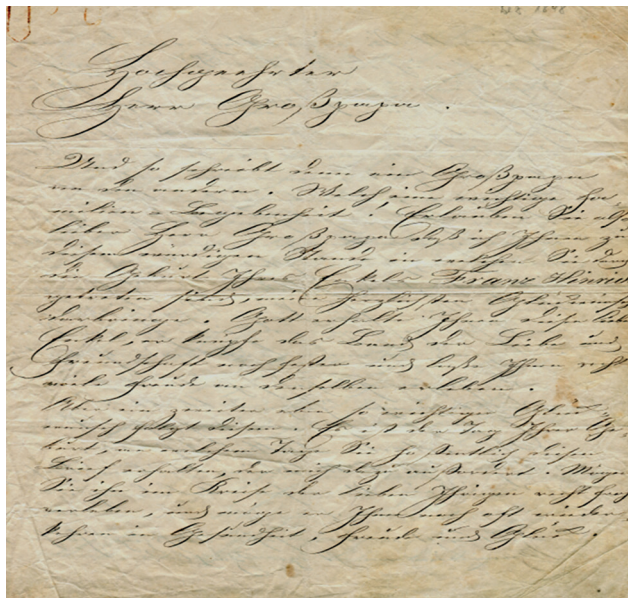 Hochgeehrter
Herr Großpapa.
Und so schreibt denn ein Großpapa
an den andern. Welch eine wichtige Fa-
milien-Begebenheit! Erlauben Sie also
lieber Herr Großpapa daß ich Ihnen zu
diesem würdigen Stande in welchen Sie durch
die Geburt Ihres Enkels Franz Hinrich
getreten sind, meine Glückwünsche
darbringe. Gott erhalte Ihnen diesen lieben
Enkel, er knüpfe das Band der Liebe und
Freundschaft noch fester und lasse Ihnen recht
viele Freude an demselben erleben.
Aber ein zweiter eben so wichtiger Glück-
wunsch folgt diesem. Es ist der Tag Ihrer Ge-
burt, an welchem Tag Sie hoffentlich diesen
Brief erhalten, der mich dazu auffordert. Mögen
Sie ihn im Kreise der lieben Ihrigen recht froh
verleben, und möge er Ihnen noch oft wieder-
kehren in Gesundheit, Freude und Glück.